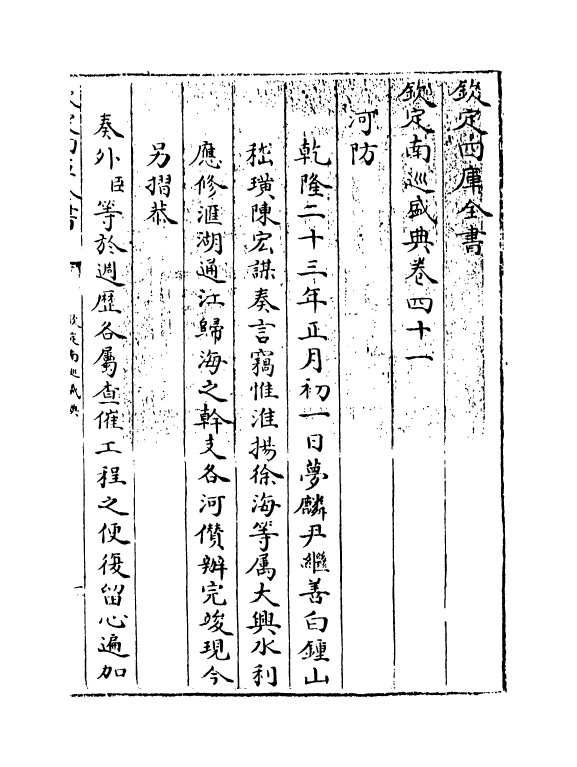 欽定四庫全書
欽定南巡盛典卷四十一
河防
乾隆二十三年正月初一日夢麟尹繼善白鍾山
嵇璜陳宏謀奏言竊惟淮揚徐海等属大興水利
應修滙湖通江歸海之幹支各河儹辦完竣現今
另摺恭
奏外臣等於週歷各屬查催工程之便復留心遍加
欽定四庫全書
欽定南巡盛典
一